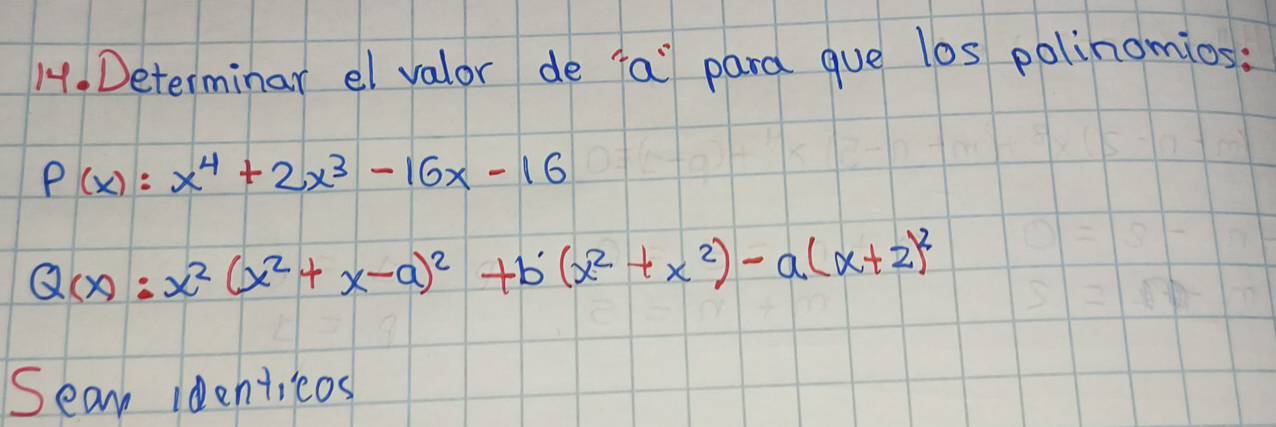 14. Determinar el valor de "a" para que los polinomios:
P(x): x⁴ + 2x³ - 16x - 16
Q(x): x² (x² + x - a)² + b (x² + x²) - a (x + 2)²
Sean identicos